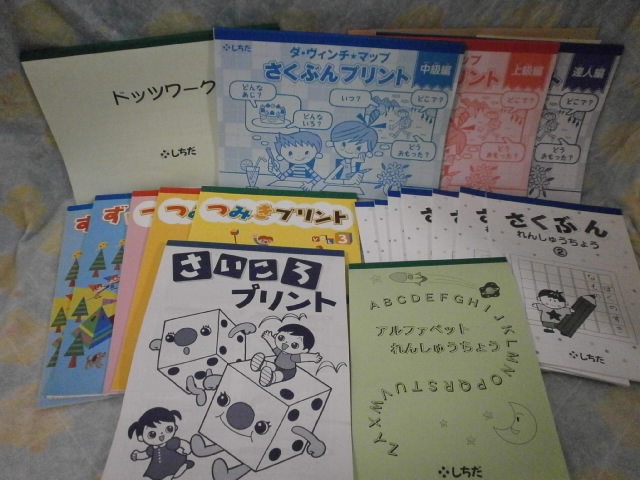 ドッツワーク
しちだ
しちだ
ダ・ヴィンチ★マップ
さくぶんプリント
中級編
どんなあじ?
どんないろ?
いつ?
どこで?
どうおもった?
ップ
プリント
上級編
どこで?
どうおもった?
達人編
ト
どこで?
どうおもった?
ず
ずし
つ
つみ
つみきプリント
3
さ
さ
さくぶん
れんしゅうちょう
②
しちだ
さいころ
プリント
ABCDEFGHIJKLMNOPQRSTUVWXYZ
アルファベット
れんしゅうちょう
しちだ